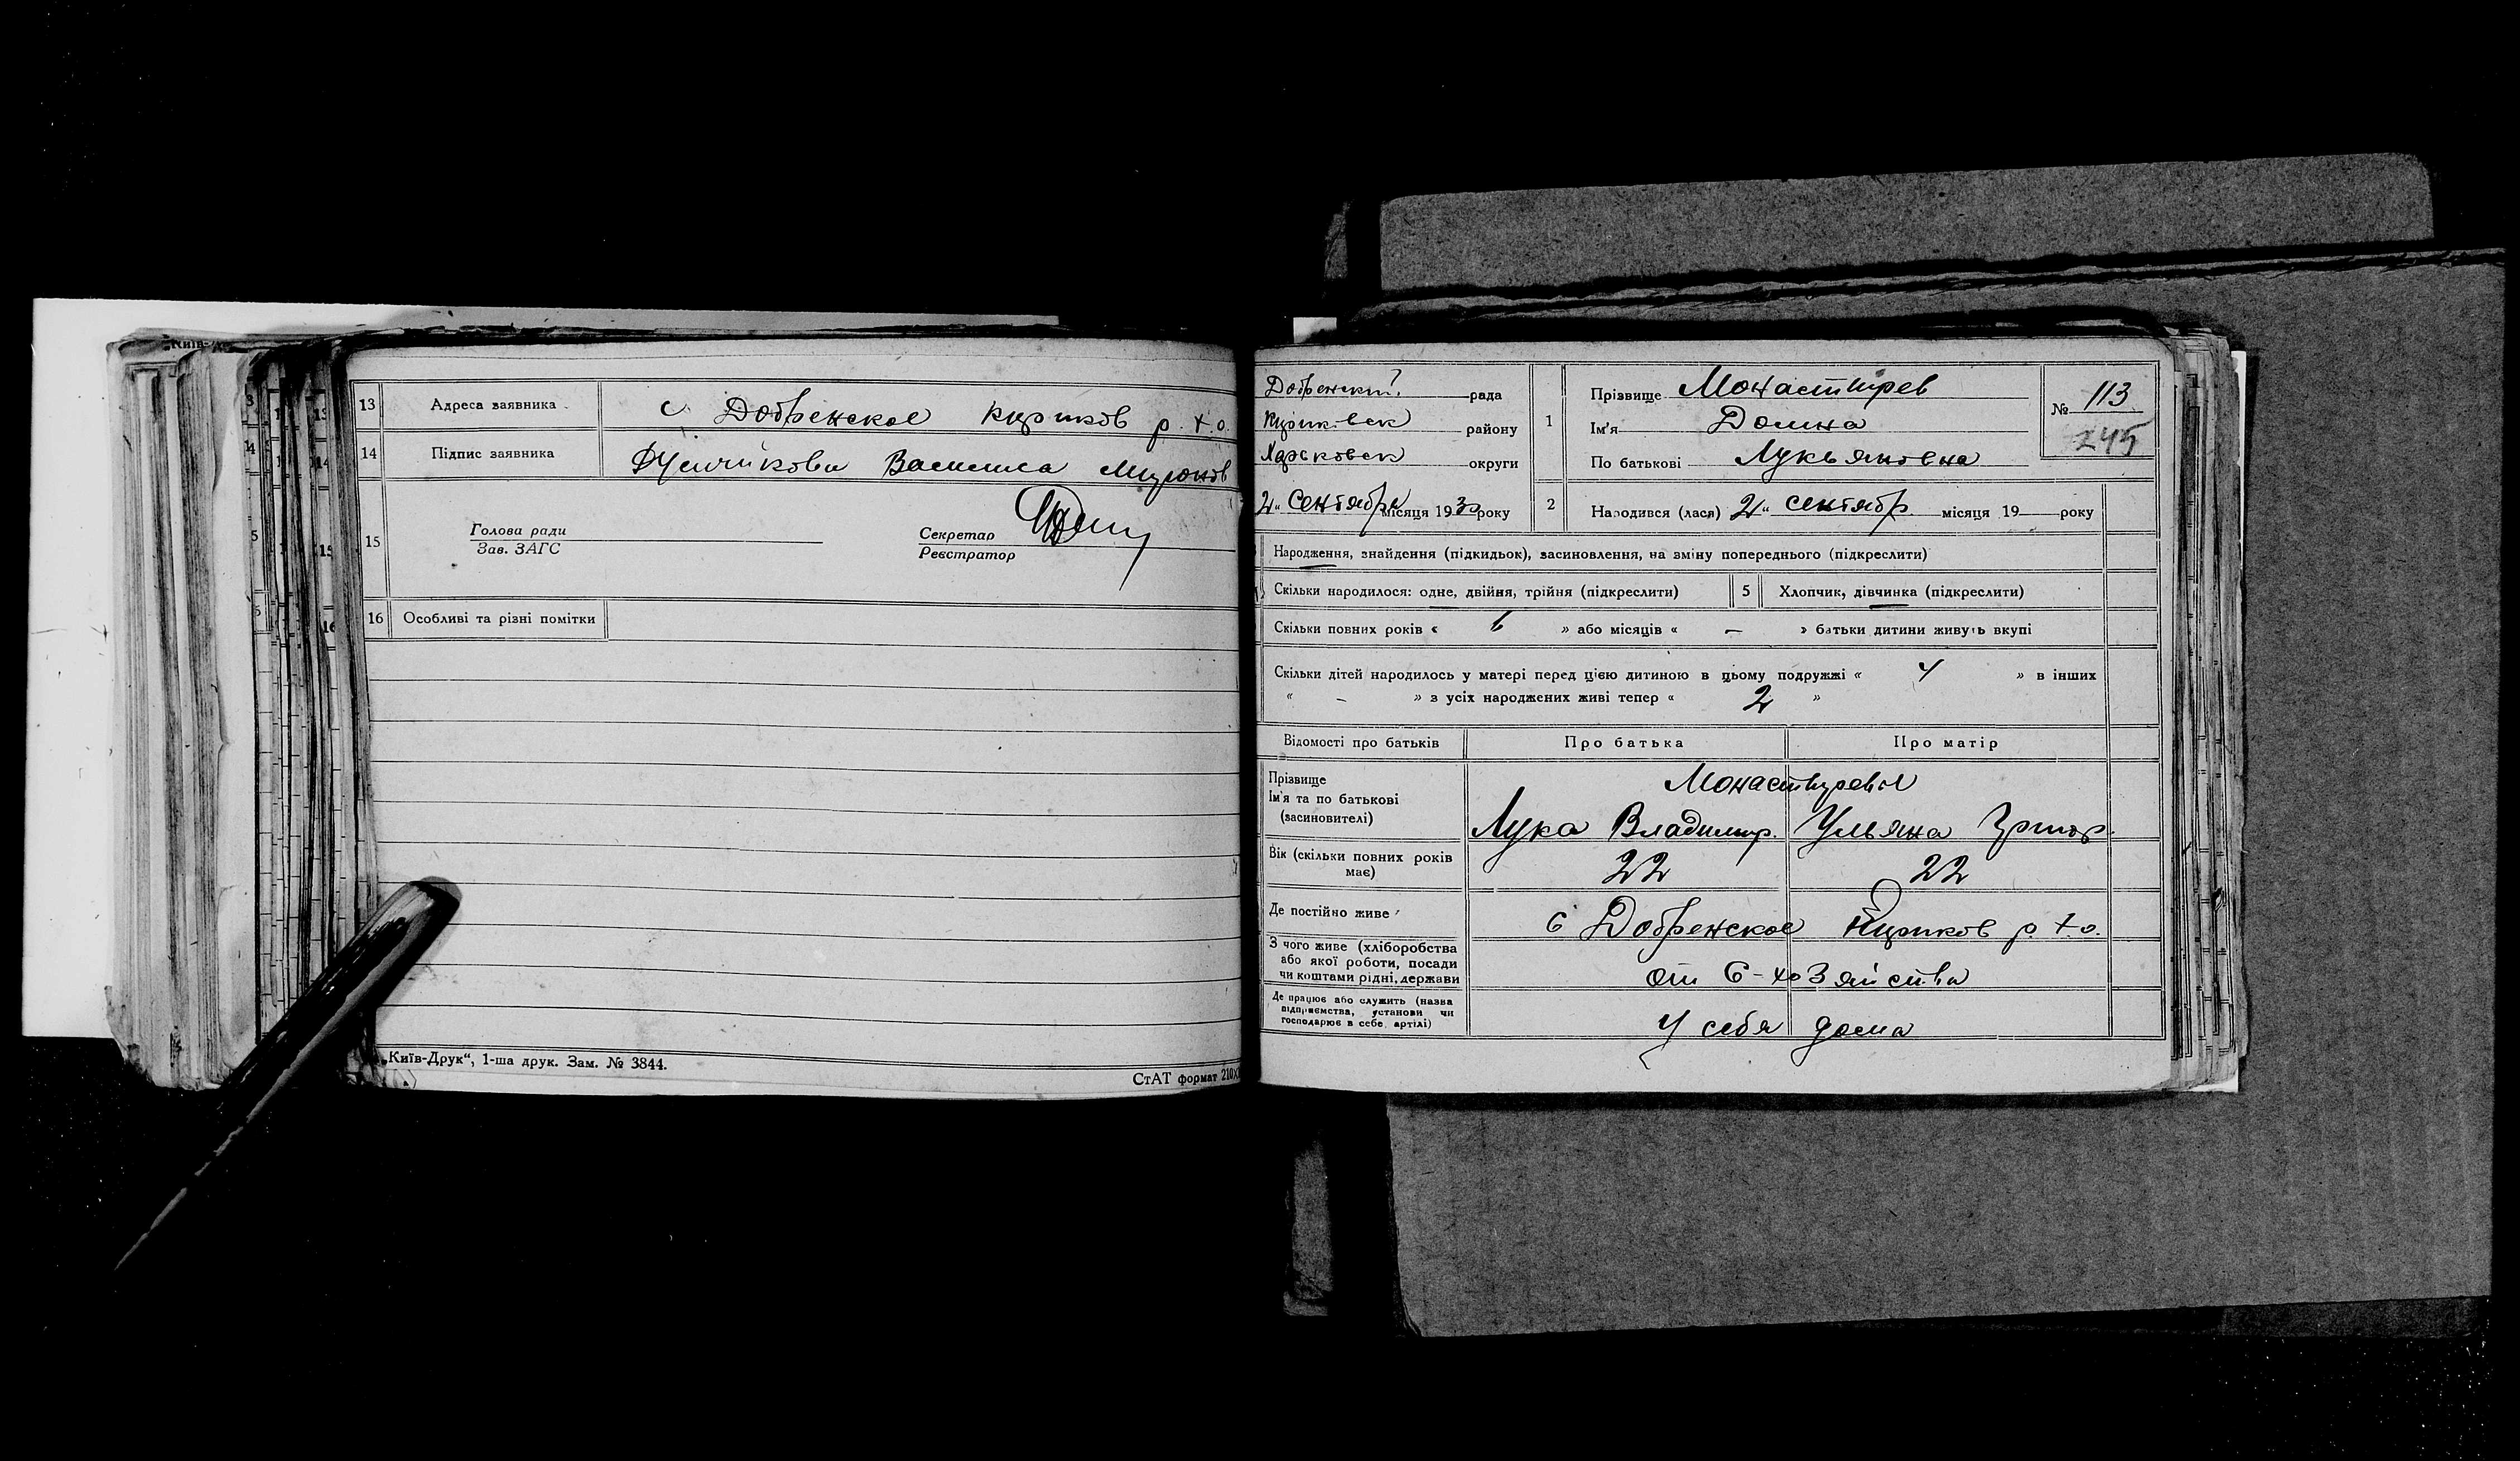 13 Адреса заявника с Добренское Куриков р. х.о.
14 Підпис заявника Василиса
15 Голова ради
Зав. ЗАГС
Секретар
Реєстратор
16 Особливі та різні помітки
„Київ-Друк“, 1-ша друк. Зам. № 3844.
СтАТ формат 210
рада
району
Харьковск округи
2" Сентября місяця 1930 року
1 Прізвище Монастырев
Ім'я Домна
По батькові Лукьяновна
№ 113
245
2 Народився (лася) 2" сентябр. місяця 19 року
Народження, знайдення (підкидьок), засиновлення, на зміну попереднього (підкреслити)
Скільки народилося: одне, двійня, трійня (підкреслити) 5 Хлопчик, дівчинка (підкреслити)
Скільки повних років « 6 » або місяців « — » батьки дитини живуть вкупі
Скільки дітей народилось у матері перед цією дитиною в цьому подружжі « 4 » в інших
« – » з усіх народжених живі тепер « 2 »
Відомості про батьків Про батька Про матір
Прізвище
Ім'я та по батькові
(засновителі)
Монастыревы
Лука Владимир. Ульяна Григор.
Вік (скільки повних років має) 22 22
Де постійно живе с Добренское р. х.о.
З чого живе (хліборобства
або якої роботи, посади
чи коштами рідні, держави
от С-хозяйства
Де працює або служить (назва
підприємства, установи чи
господарює в себе, артілі)
У себя дома